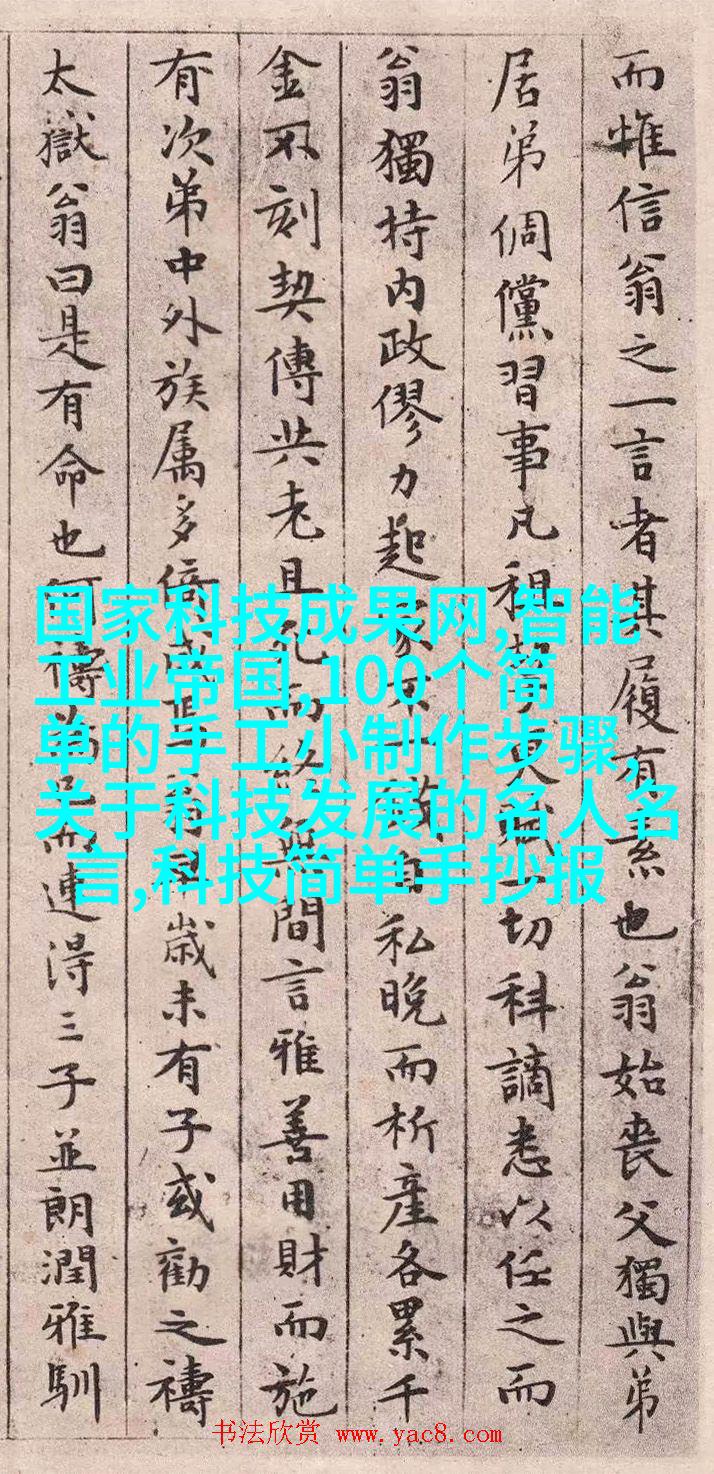 而惟信翁之一言者其履有素也翁始喪父獨與弟
居弟倜儻習事凡租更賦一切科謫悉以任之而
翁獨持内政僇力起家不自私晚而析產各累千
金不刻契傳共老且死而無間言雅善用財而施
有次第中外族属多倚歲未有子或勸之禱
太嶽翁曰是有命也何禱連得三子並朗潤雅馴
国家科技成果网,智能
工业帝国,100个简
单的手工小制作步骤,
关于科技发展的名人名
言,科技简单手抄报
书法欣赏 www.yac8.com